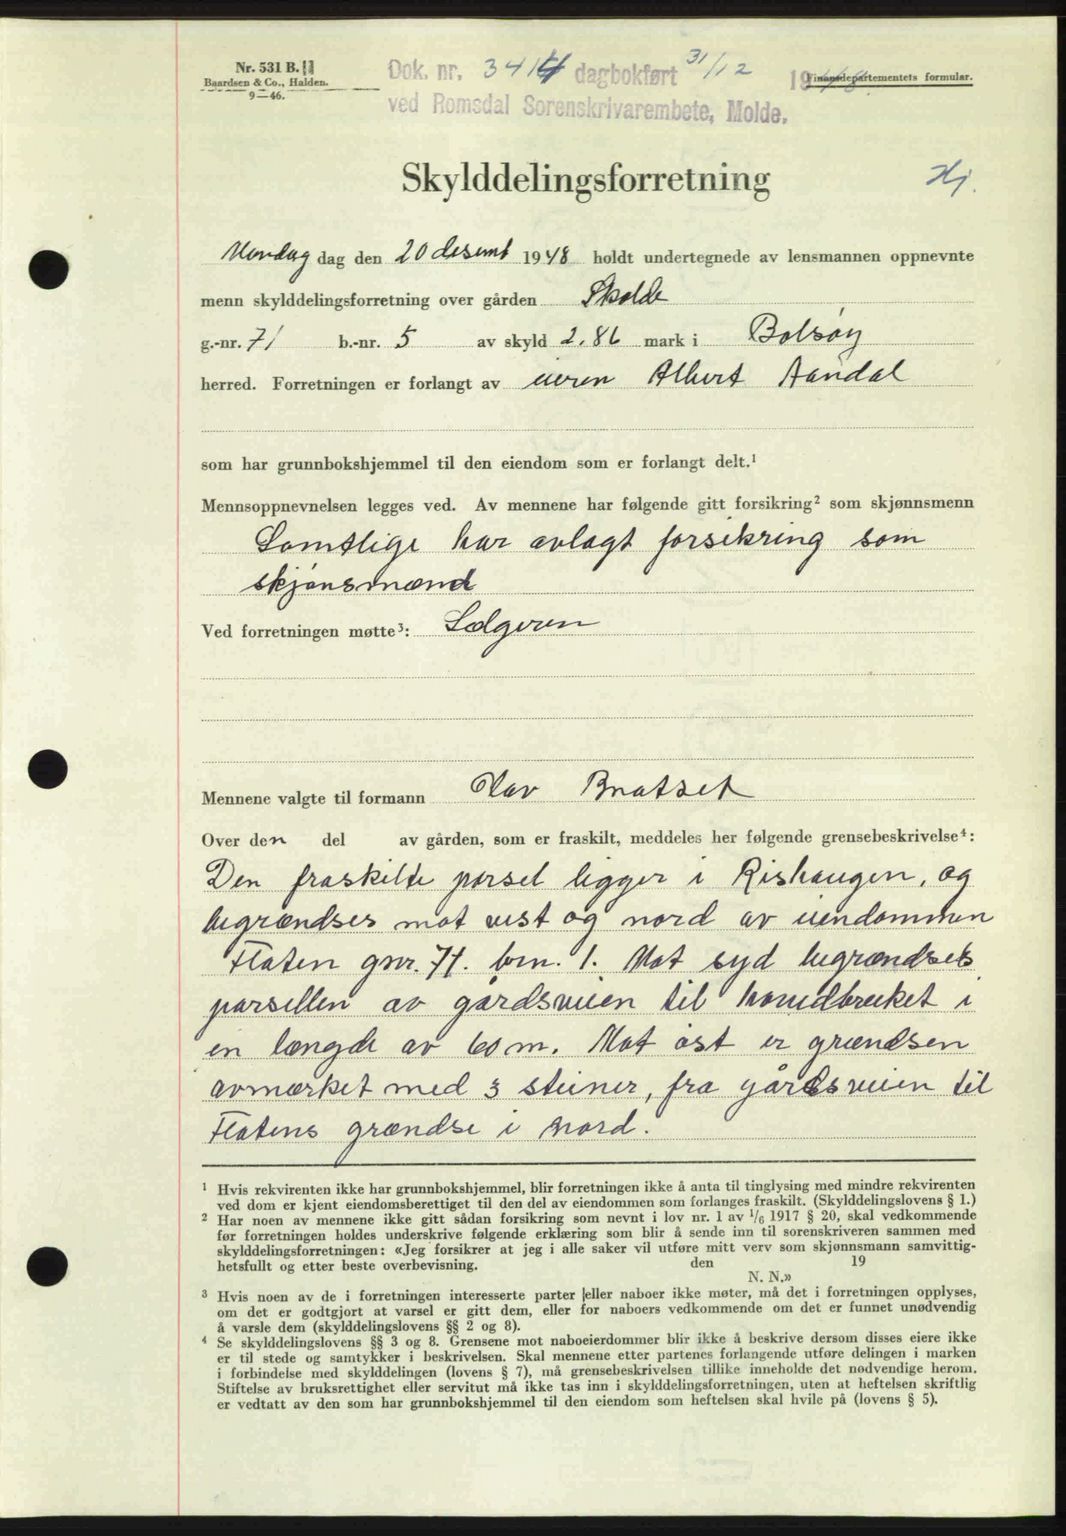 Nr. 531 B.
Baardsen & Co., Halden.
9—46.
Dok. nr. 3414 dagbokført 31/12 1948.
Finansdepartementets formular.
ved Romsdal Sorenskrivarembete, Molde.
Skylddelingsforretning
Mondag dag den 20 desemb 1948 holdt undertegnede av lensmannen oppnevnte
menn skylddelingsforretning over gården Skolde
g.-nr. 71 b.-nr. 5 av skyld 2.86 mark i Bolsøy
herred. Forretningen er forlangt av eieren Albert Aandal
som har grunnbokshjemmel til den eiendom som er forlangt delt.¹
Mennsoppnevnelsen legges ved. Av mennene har følgende gitt forsikring² som skjønnsmenn
Samtlige har avlagt forsikring som
skjønsmænd
Ved forretningen møtte³: Selgeren
Mennene valgte til formann Olav Bratset
Over den del av gården, som er fraskilt, meddeles her følgende grensebeskrivelse⁴:
Den fraskilte parsel ligger i Rishaugen, og
begrændses mot vest og nord av eiendommen
Flaten gnr. 71. brn. 1. Mot syd begrændses
parsellen av gårdsveien til hovedbruket i
en længde av 60 m. Mot øst er grændsen
avmærket med 3 steiner, fra gårdsveien til
Flatens grændse i nord.
¹ Hvis rekvirenten ikke har grunnbokshjemmel, blir forretningen ikke å anta til tinglysing med mindre rekvirenten
ved dom er kjent eiendomsberettiget til den del av eiendommen som forlanges fraskilt. (Skylddelingslovens § 1.)
² Har noen av mennene ikke gitt sådan forsikring som nevnt i lov nr. 1 av 1/6 1917 § 20, skal vedkommende
før forretningen holdes underskrive følgende erklæring som blir å sende inn til sorenskriveren sammen med
skylddelingsforretningen: «Jeg forsikrer at jeg i alle saker vil utføre mitt verv som skjønnsmann samvittig-
hetsfullt og etter beste overbevisning. den 19
N. N.»
³ Hvis noen av de i forretningen interesserte parter eller naboer ikke møter, må det i forretningen opplyses,
om det er godtgjort at varsel er gitt dem, eller for naboers vedkommende om det er funnet unødvendig
å varsle dem (skylddelingslovens §§ 2 og 8).
⁴ Se skylddelingslovens §§ 3 og 8. Grensene mot naboeierdommer blir ikke å beskrive dersom disses eiere ikke
er til stede og samtykker i beskrivelsen. Skal mennene etter partenes forlangende utføre delingen i marken
i forbindelse med skylddelingen (lovens § 7), må grensebeskrivelsen tillike inneholde det nødvendige herom.
Stiftelse av bruksrettighet eller servitut må ikke tas inn i skylddelingsforretningen, uten at heftelsen skriftlig
er vedtatt av den som har grunnbokshjemmel til den eiendom som heftelsen skal hvile på (lovens § 5).